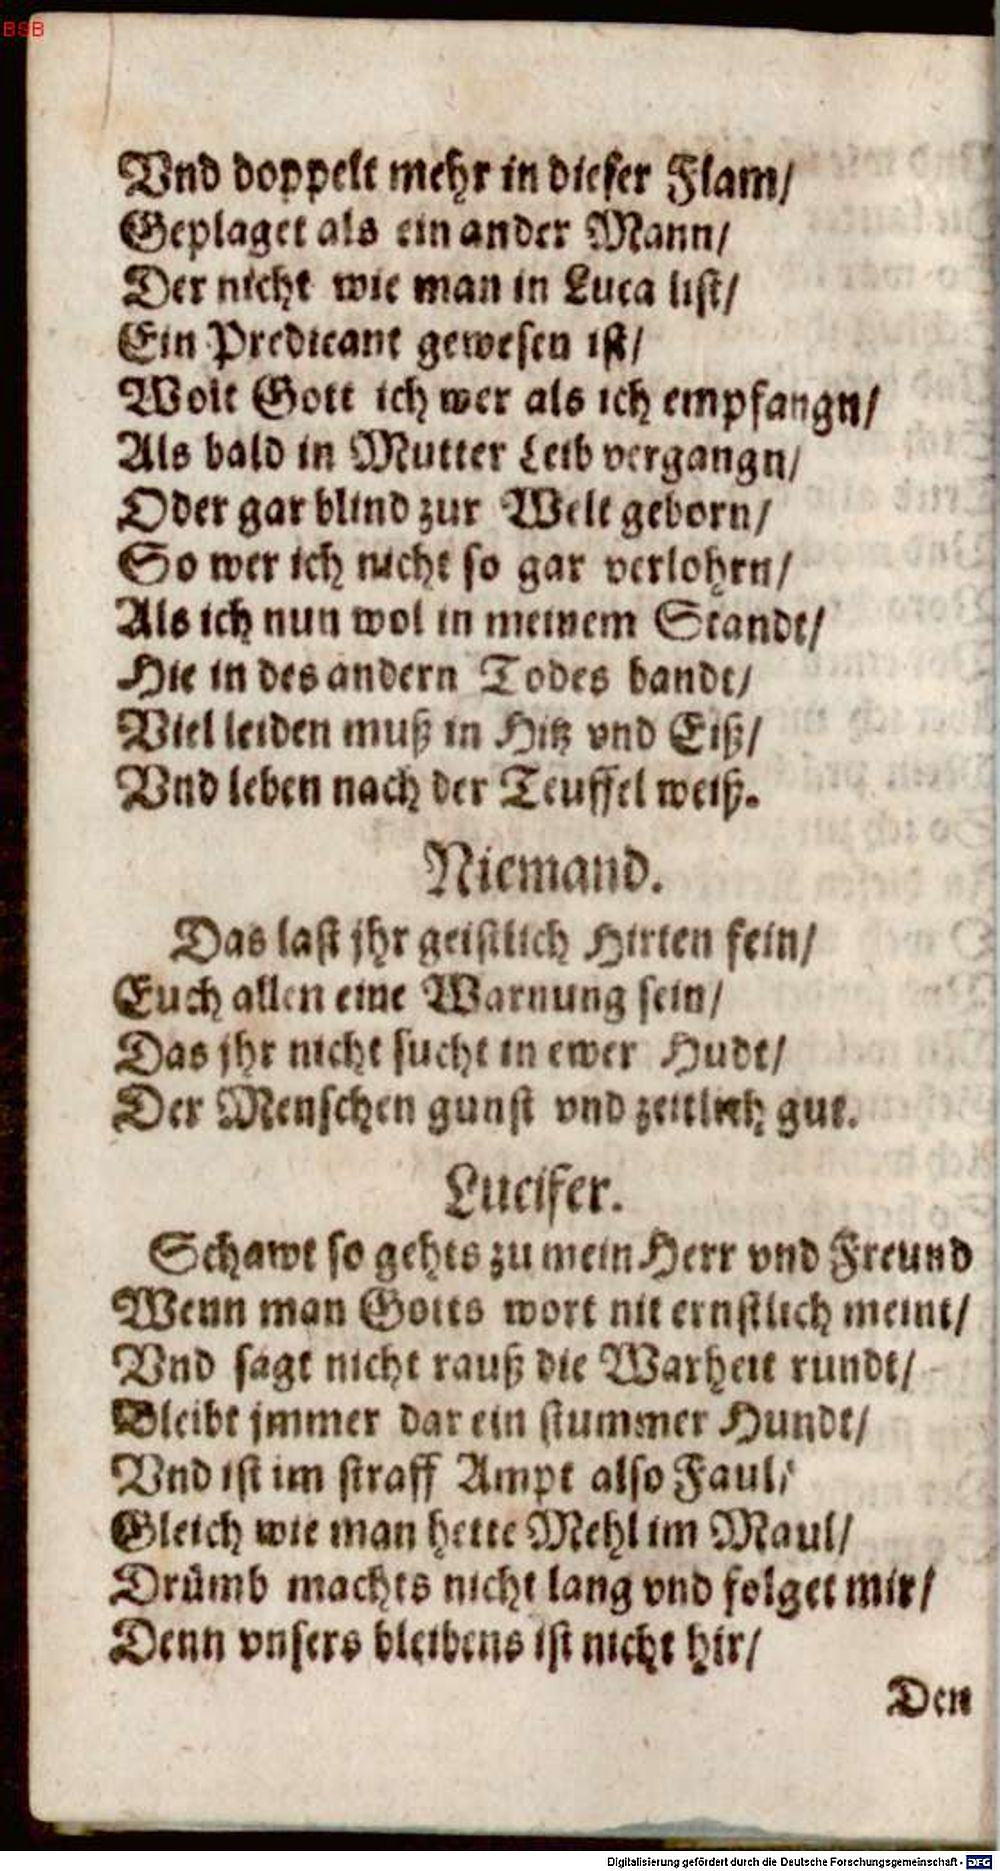 BSB
Vnd doppelt mehr in dieser Flam/
Geplaget als ein ander Mann/
Der nicht wie man in Luca list/
Ein Predicant gewesen ist/
Wolt Gott ich wer als ich empfangn/
Als bald in Mutter Leib vergangn/
Oder gar blind zur Welt geborn/
So wer ich nicht so gar verlohrn/
Als ich nun wol in meinem Standt/
Hie in des andern Todes bandt/
Viel leiden muß in Hitz vnd Eiß/
Vnd leben nach der Teuffel weiß.
Niemand.
Das last jhr geistlich Hirten fein/
Euch allen eine Warnung sein/
Das jhr nicht sucht in ewer Hudt/
Der Menschen gunst vnd zeitlich gut.
Lucifer.
Schawt so gehts zu mein Herr vnd Freund
Wenn man Gotts wort nit ernstlich meint/
Vnd sagt nicht rauß die Warheit rundt/
Bleibt jmmer dar ein stummer Hundt/
Vnd ist im straff Ampt also Faul/
Gleich wie man hette Mehl im Maul/
Drümb machts nicht lang vnd folget mir/
Denn vnsers bleibens ist nicht hir/
Den
Digitalisierung gefördert durch die Deutsche Forschungsgemeinschaft - DFG